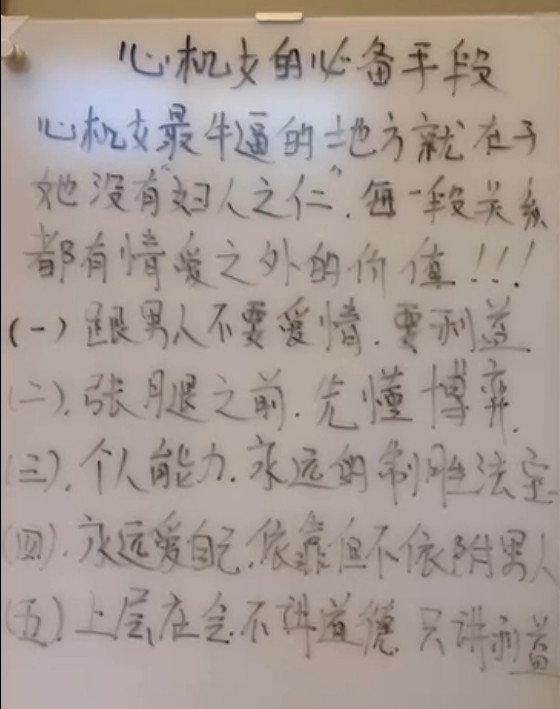 心机女的必备手段
心机女最牛逼的地方就在于
她没有"妇人之仁".每一段关系
都有情爱之外的价值!!!
(一)跟男人不要爱情.要利益
(二).张腿之前.先懂博弈.
(三).个人能力.永远的制胜法宝
(四).永远爱自己.依靠但不依附男人
(五)上层社会.不讲道德 只讲利益